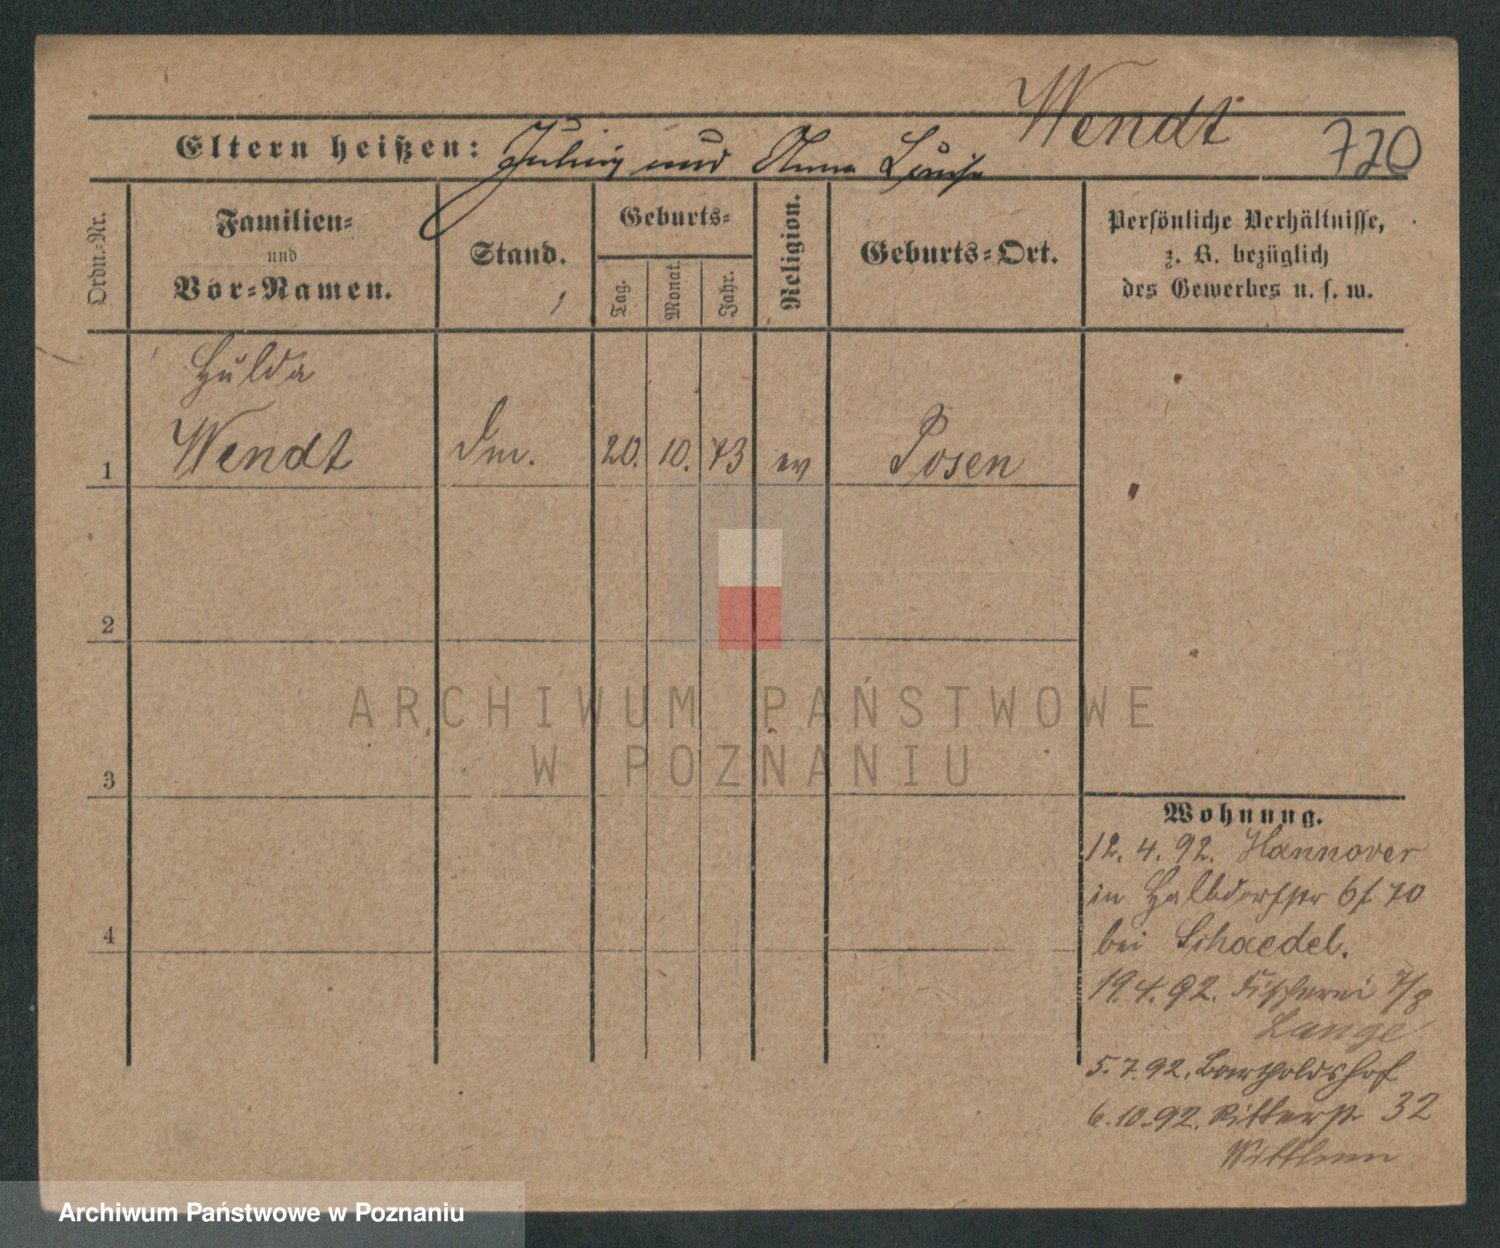 Wendt
720
Eltern heißen: Julius und Anna Louise
Ordn.-Nr.
Familien-
und
Vor-Namen.
Stand.
Geburts-
Tag.
Monat.
Jahr.
Religion.
Geburts-Ort.
Persönliche Verhältnisse,
z. B. bezüglich
des Gewerbes u. s. w.
Hulda
1 Wendt Dm. 20. 10. 73 ev Posen
2
3
4
Wohnung.
12. 4. 92. Hannover
in Halbdorfstr 6/ 70
bei Schaedel.
19. 4. 92. Fischerei 7/8
Lange
5. 7. 92. Bartholdshof
6. 10. 92. Ritterstr 32
ARCHIWUM PAŃSTWOWE
W POZNANIU
Archiwum Państwowe w Poznaniu